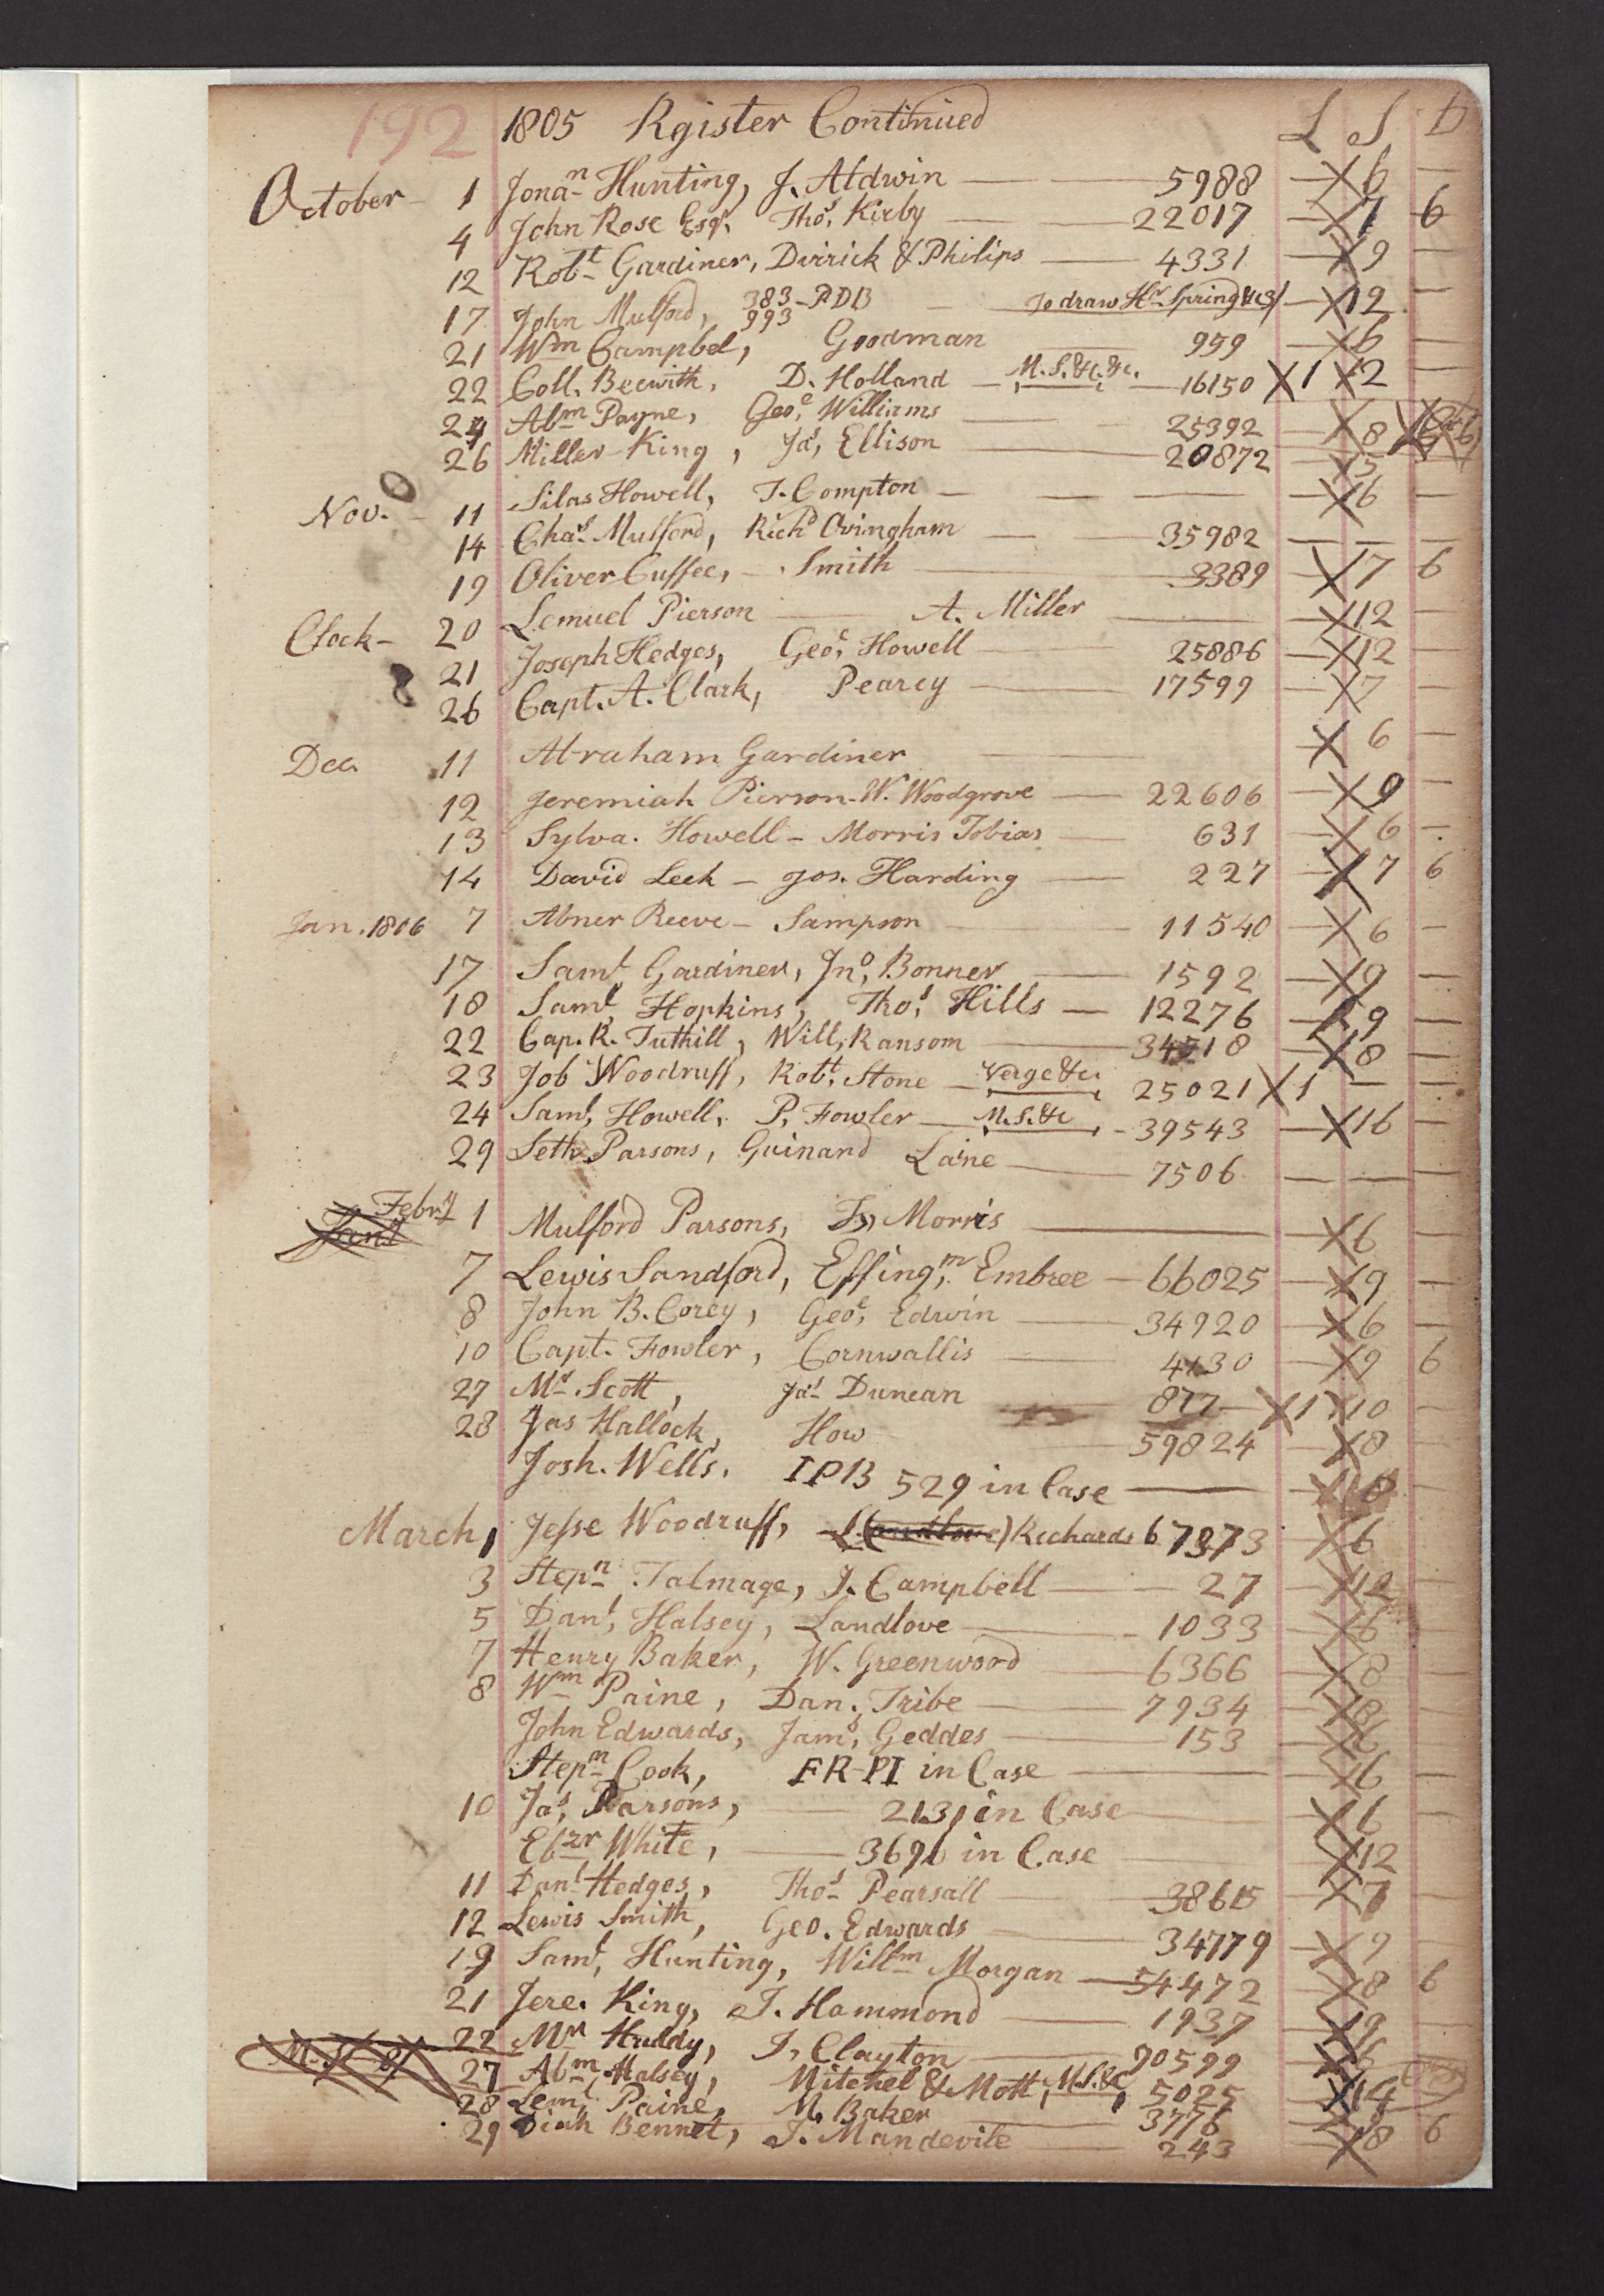 192 1805 Rgister Continued L S D
October - 1 Jonan Hunting, J. Aldwin — 5988 — X 6 —
4 John Rose Esqr. Thos. Kirby — 22017 — X 7 6
12 Robt Gardiner, Dirrick & Philips — 4331 — X 9 —
17 John Mulford, 383 993 - PDB — To draw Hr Spring &c 3/ — X 12 —
21 Wm Campbel, Goodman — 959 — X 6 —
22 Coll. Beewith, D. Holland — M.S.&c.&c. — 16150 X 1 X 2 —
24 Abm Payne, Geoe. Williams — 25392 — X 8
26 Miller King, Jas, Ellison — 20872 — X 5 —
Nov. - 11 Silas Howell, T. Compton — — — X 6 —
14 Chas. Mulford, Richd Ovingham — 35982 — — —
19 Oliver Cuffee, — Smith — 3389 — X 7 6
Clock - 20 Lemuel Pierson — A. Miller — X 12 —
21 Joseph Hedges, Geoe, Howell — 25886 — X 12 —
8 26 Capt. A. Clark, Pearcy — 17599 — X 7 —
Dec. 11 Abraham Gardiner — X 6 —
12 Jeremiah Pierson - W. Woodgrove — 22606 — X 9 —
13 Sylva. Howell - Morris Tobias — 631 — X 6 —
14 David Leek - Jos. Harding — 227 — X 7 6
Jan. 1806 7 Abner Reeve - Sampson — 11540 — X 6 —
17 Saml. Gardiner, Jno, Bonner — 1592 — X 9 —
18 Saml, Hopkins, Thos, Hills — 12276 — X 9 —
22 Cap. R. Tuthill, Will, Ransom — 34518 — X 8 —
23 Job Woodruff, Robt, Stone — Verge &c. 25021 X 1 — —
24 Saml, Howell, P, Fowler — M.S.&c — 39543 — X 16 —
29 Seth Parsons, Guinand Laine — 7506 — — —
Febry 1 Mulford Parsons, Morris — X 6 —
7 Lewis Sandford, Effingm. Embree — 66025 — X 9 —
8 John B. Corey, Geoe, Edwin — 34920 — X 6 —
10 Capt. Fowler, Cornwallis — 4130 — X 9 6
27 Mr. Scott, Jas Duncan — 877 — X 1 X 10 —
28 Jas Hallock, How — 59824 — X 8 —
Josh. Wells. IPB 529 in Case — X 8 —
March 1 Jesse Woodruff, Richards 67373 — X 6 —
3 Stepn Talmage, J. Campbell — 27 — X 12 —
5 Danl, Halsey, Landlove — 1033 — X 6 —
7 Henry Baker, W. Greenword — 6366 — X 8 —
8 Wm Paine, Dan. Tribe — 7934 — X 8 —
John Edwards, Jams, Geddes — 153 — X 6 —
Stepn Cook, FR-PI in Case — X 6 —
10 Jas, Parsons, — 2131 in Case — X 6 —
Ebzr White, — 3696 in Case — X 12 —
11 Danl Hedges, Thos Pearsall — 38615 — X 7 —
12 Lewis Smith, Geo. Edwards — 34779 — X 9 —
19 Saml, Hunting, Willm Morgan — 54472 — X 8 6
21 Jere. King, J. Hammond — 1937 — X 9 —
22 Mr Huddy, J, Clayton — 90599 — X
27 Abm Halsey, Mitchel & Mott, M.S.&c, 5025 — X 14
28 Leml, Paine, M. Baker — 3776 —
29 Bennet, J. Mandevile — 243 — X 8 6